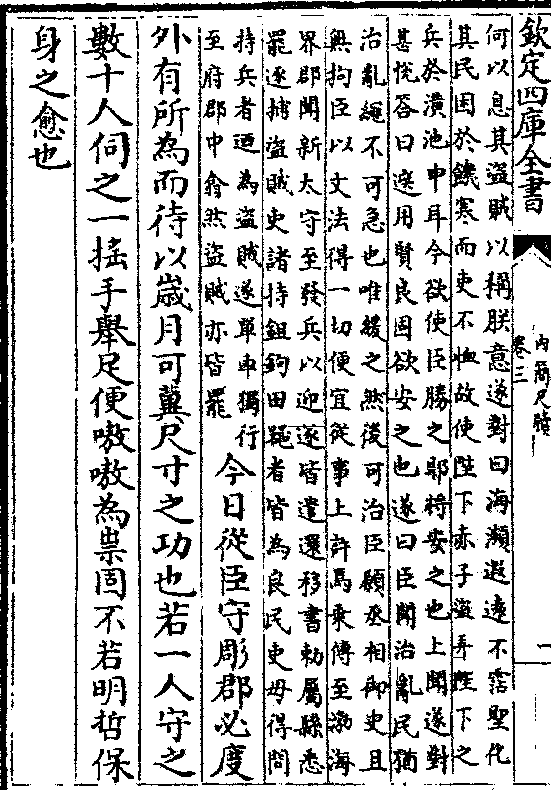 欽定四庫全書
內簡尺牘
卷三
一
何以息其盜賊以稱朕意遂對曰海瀕遐遠不霑聖化
其民困於饑寒而吏不恤故使陛下赤子盜弄陛下之
兵於潢池中耳今欲使臣勝之耶將安之也上聞遂對
甚悅答曰選用賢良固欲安之也遂曰臣聞治亂民猶
治亂繩不可急也唯緩之然後可治臣願丞相御史且
無拘臣以文法得一切便宜從事上許焉乘傳至渤海
界郡聞新太守至發兵以迎遂皆遣還移書勅屬縣悉
罷逐捕盜賊吏諸持鉏鉤田器者皆為良民吏毋得問
持兵者迺為盜賊遂單車獨行
至府郡中翕然盜賊亦皆罷
今日從臣守彫郡必度
外有所為而待以歲月可冀尺寸之功也若一人守之
數十人伺之一搖手舉足便嗷嗷為祟固不若明哲保
身之愈也